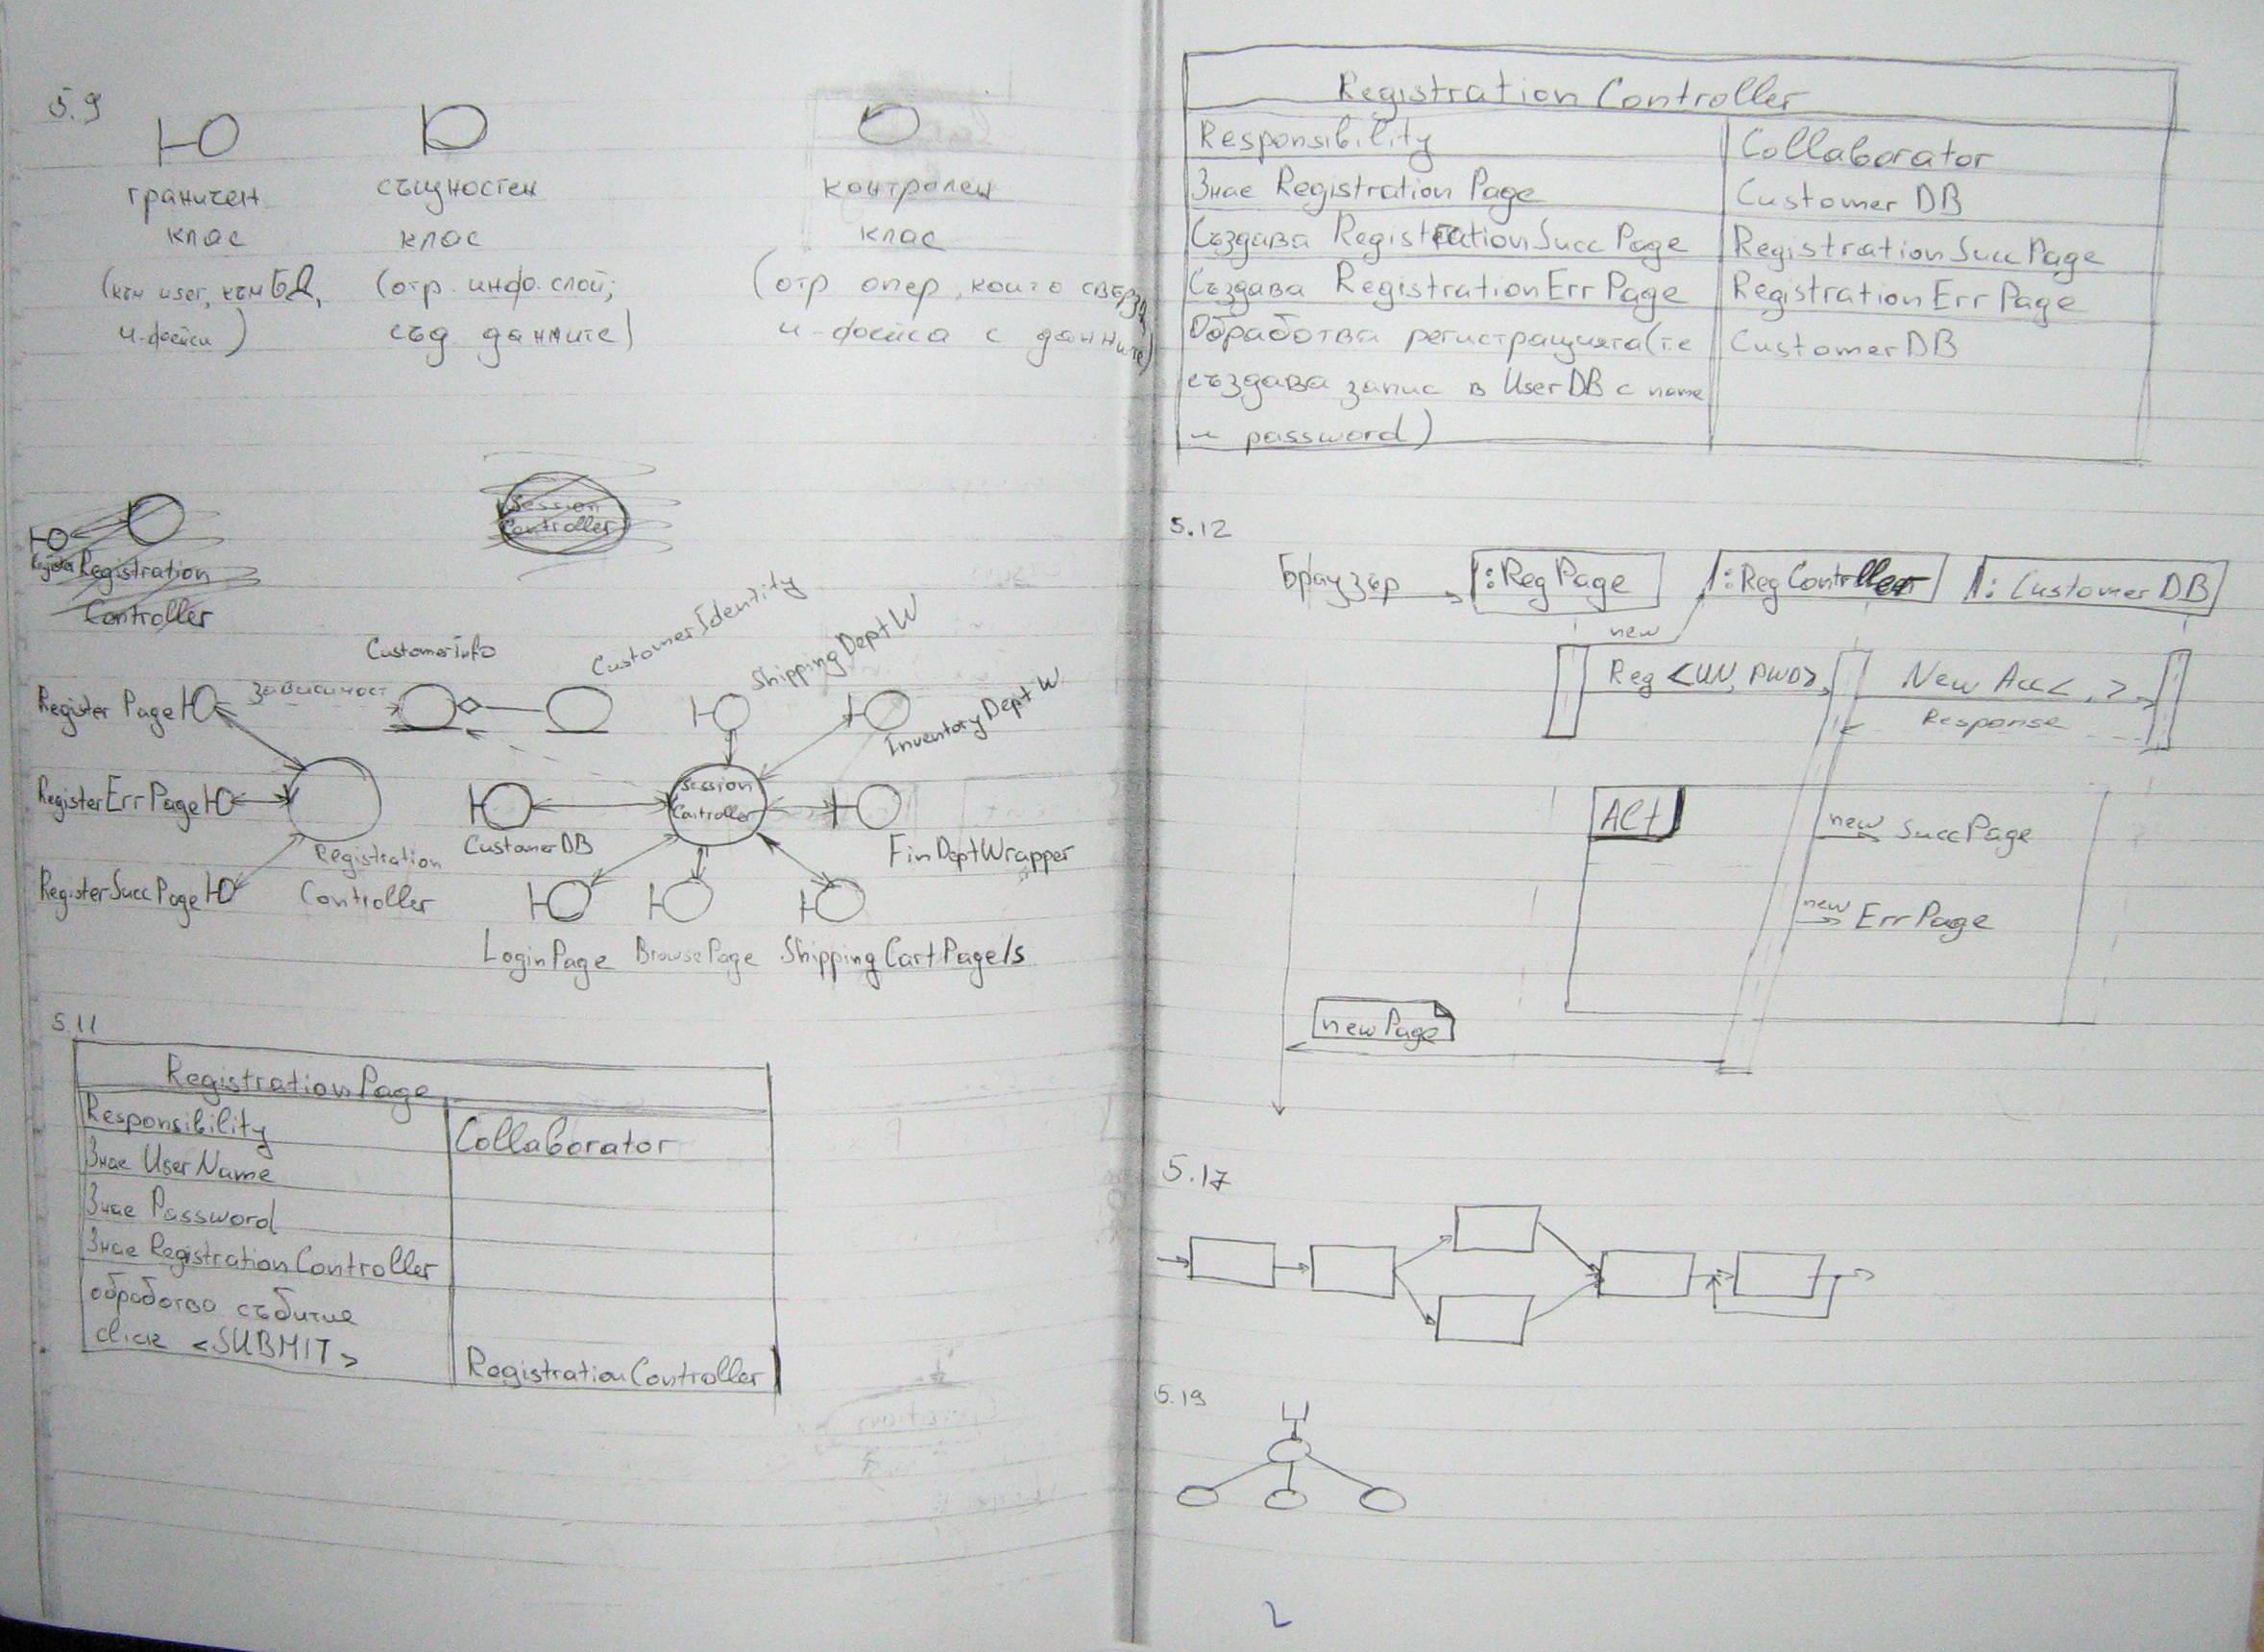 5.9
граничен
клас
(към user, към БД,
и-фейси)
същностен
клас
(отр. инфо. слой;
съд данните)
контролен
клас
(отр опер, които свързв
и-фейса с данните)
Session
Controller
Registration
Controller
CustomerInfo
CustomerIdentity
ShippingDeptW
InventoryDeptW
Register Page
зависимост
RegisterErrPage
RegisterSuccPage
Registration
Controller
CustomerDB
Session
Controller
FinDeptWrapper
LoginPage BrowsePage ShippingCartPage/s
5.11
RegistrationPage
Responsibility Collaborator
Знае UserName
Знае Password
Знае RegistrationController
обработва събитие
click <SUBMIT> RegistrationController
Registration Controller
Responsibility Collaborator
Знае Registration Page Customer DB
Създава RegistrationSucc Page RegistrationSucc Page
Създава RegistrationErr Page RegistrationErr Page
Обработва регистрацията(т.е CustomerDB
създава запис в UserDB с name
и password)
5.12
Браузър :RegPage :RegController : CustomerDB
new
Reg <UN, PWD> New Acc< , >
Response
Alt
new SuccPage
new ErrPage
newPage
5.17
5.19
2